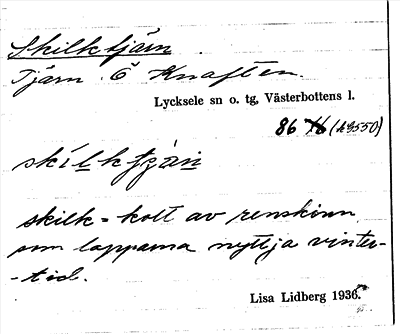 Skilktjärn
Tjärn. Ö Knaften.
Lycksele sn o. tg, Västerbottens l.
86 (A3550)
skilktjän
skilk = kolt av renskinn
som lapparna nyttja vinter-
-tid.
Lisa Lidberg 1936.